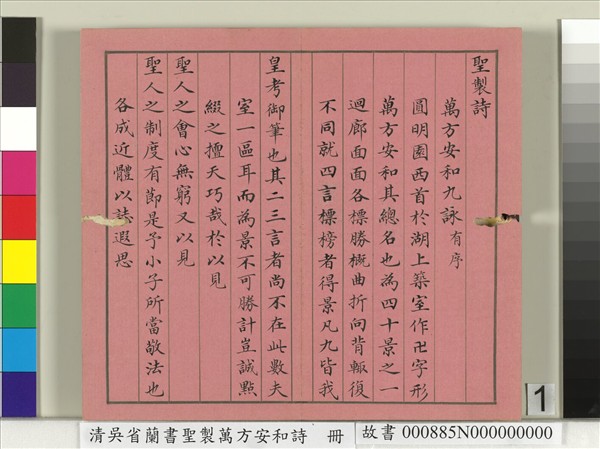 聖製詩
萬方安和九詠有序
圓明園西首於湖上築室作卍字形
萬方安和其總名也為四十景之一
迴廊面面各標勝概曲折向背輙復
不同就四言標榜者得景凡九皆我
皇考御筆也其二三言者尚不在此數夫
室一區耳而為景不可勝計豈誠點
綴之擅天巧哉於以見
聖人之會心無窮又以見
聖人之制度有節是予小子所當敬法也
各成近體以誌遐思
1
清吳省蘭書聖製萬方安和詩 冊
故書 000885N000000000